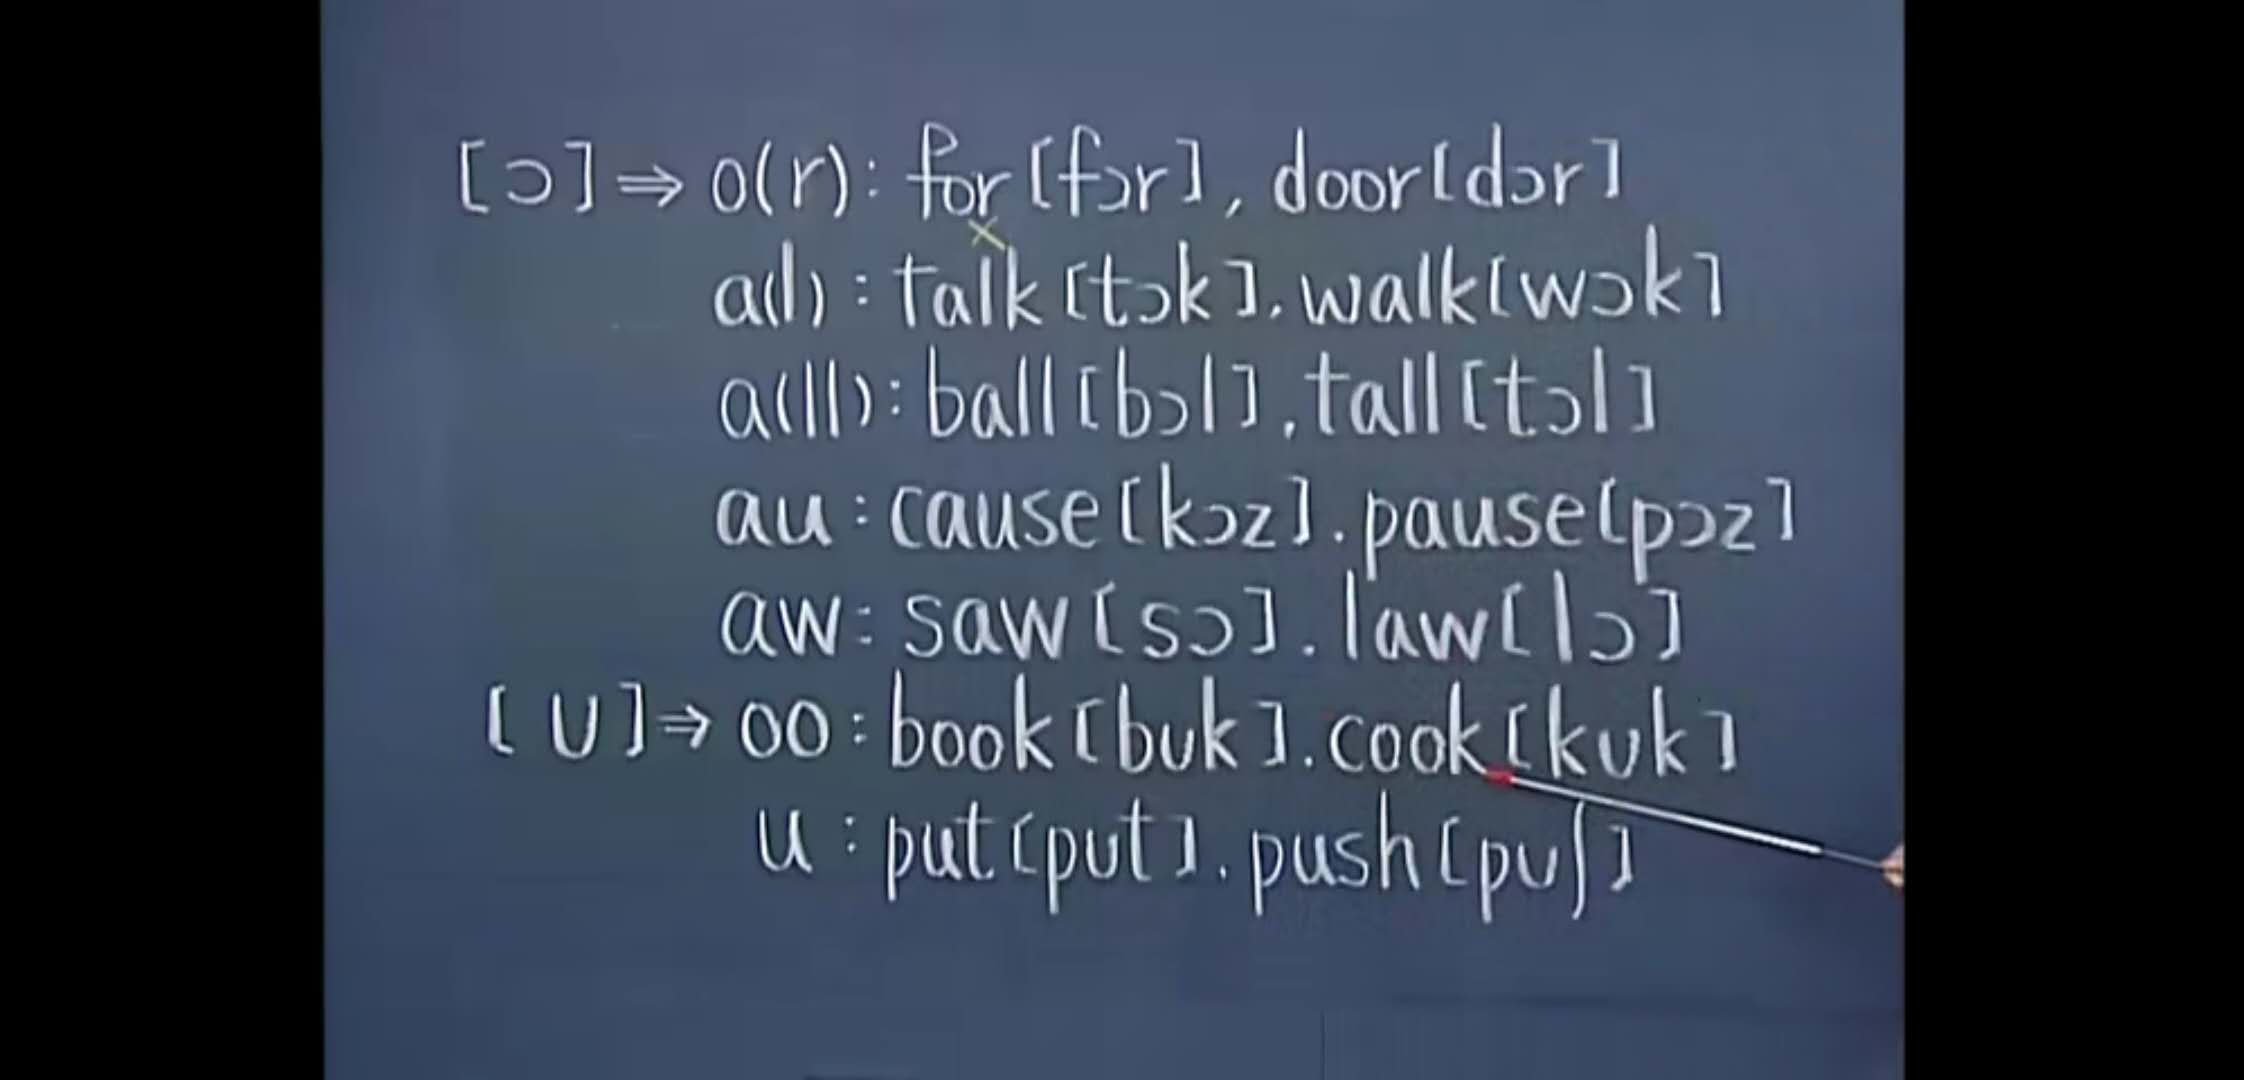 [ɔ]⇒ o(r): for[fɔr], door[dɔr]
a(l): talk[tɔk]. walk[wɔk]
a(ll): ball[bɔl], tall[tɔl]
au: cause[kɔz]. pause[pɔz]
aw: saw[sɔ]. law[lɔ]
[ʊ]⇒ oo: book[bʊk]. cook[kʊk]
u: put[pʊt]. push[pʊʃ]